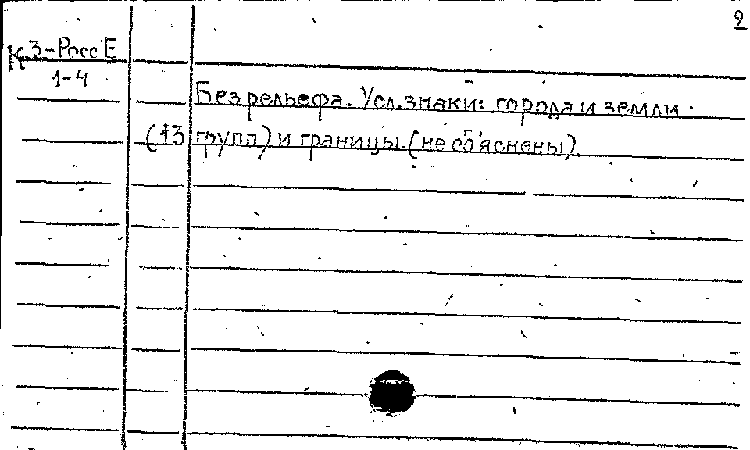 2
К 3-Росс Е
1-4
Без рельефа. Усл. знаки: города и земли
(13 групп) и границы. (не об'яснены).